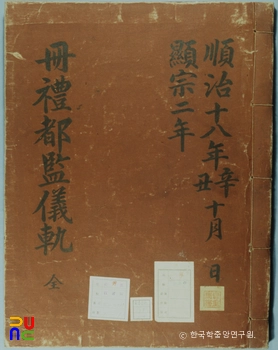 順治十八年辛丑十月 日
顯宗二年
冊禮都監儀軌 全
ⓒ 한국학중앙연구원